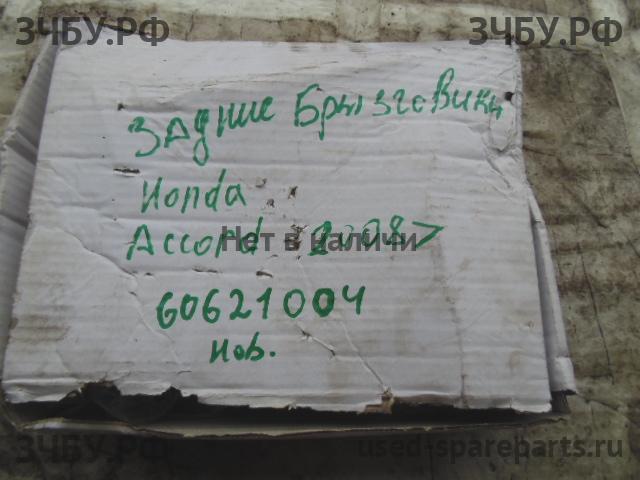 ЗЧБУ.РФ ЗЧБУ.РФ
ЗАДНИЕ БрызговИки
Honda
Accord 2008>
Нет в наличии
60621004
Нов.
ЗЧБУ.РФ
used-spareparts.ru